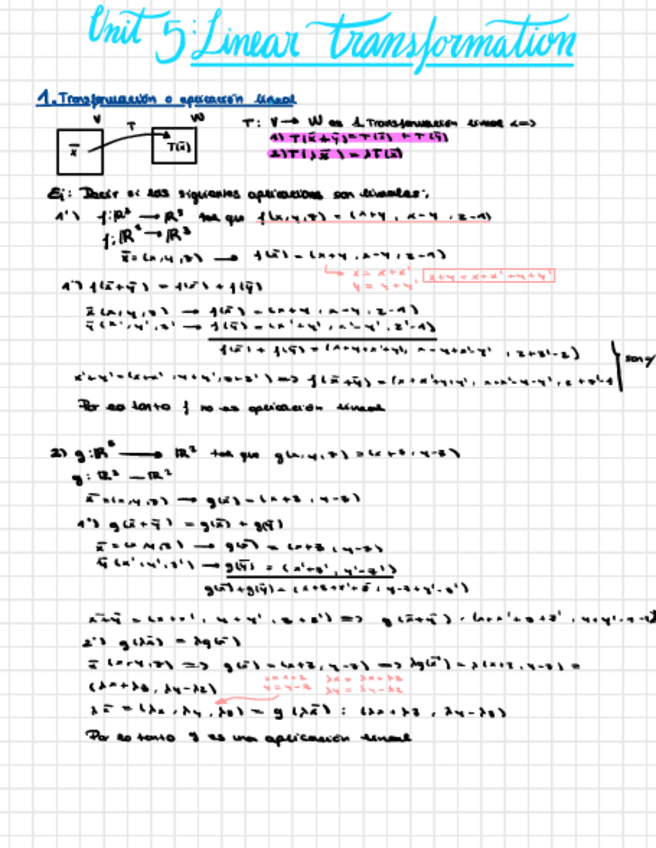 Unit 5: Linear transformation
1. Transformación o aplicación lineal
V T W
x̄ T(x̄)
T: V → W es 1. Transformación lineal <=>
1) T(x̄+ȳ)=T(x̄) + T(ȳ)
2) T(λx̄) = λT(x̄)
Ej: Decir si las siguientes aplicaciones son lineales:
1º) f:ℝ³ → ℝ³ tal que f(x,y,z) = (x+y, x-y, z-1)
f:ℝ³ → ℝ³
x̄=(x,y,z) → f(x̄) = (x+y, x-y, z-1)
x = x+x'
y = y+y'
x+y = x+x'+y+y'
1º) f(x̄+ȳ) = f(x̄) + f(ȳ)
x̄(x,y,z) → f(x̄) = (x+y, x-y, z-1)
ȳ(x',y',z') → f(ȳ) = (x'+y', x'-y', z'-1)
f(x̄) + f(ȳ) = (x+y+x'+y', x-y+x'-y', z+z'-2)
=> f(x̄+ȳ) = (x+x'+y+y', x+x'-y-y', z+z'-1
son
Por lo tanto f no es aplicación lineal
2) g:ℝ³ → ℝ² tal que g(x,y,z) = (x+z, y-z)
g: ℝ³ — ℝ²
x̄=(x,y,z) → g(x̄) = (x+z, y-z)
1º) g(x̄+ȳ) = g(x̄) + g(ȳ)
x̄=(x,y,z) → g(x̄) = (x+z, y-z)
ȳ(x',y',z') → g(ȳ) = (x'+z', y'-z')
g(x̄)+g(ȳ) = (x+z+x'+z', y-z+y'-z')
x̄+ȳ = (x+x', y+y', z+z') => g(x̄+ȳ) = (x+x'+z+z', y+y'-z-z'
2º) g(λx̄) = λg(x̄)
x̄(x,y,z) => g(x̄) = (x+z, y-z) => λg(x̄) = λ(x+z, y-z) =
(λx+λz, λy-λz)
x=x+z λx = λx+λz
y=y-z λy = λy-λz
λx̄ = (λx, λy, λz) = g(λx̄) : (λx+λz, λy-λz)
Por lo tanto g es una aplicación lineal